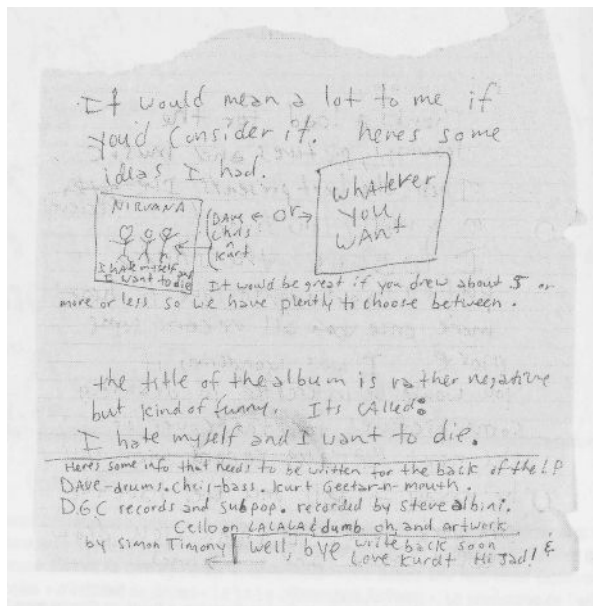 It would mean a lot to me if
you'd consider it. heres some
ideas I had.
NIRVANA
(DAVE ← or →
Chris
n
Kurt
I hate myself and
I want to die
whatever
you
want
It would be great if you drew about 5 or
more or less so we have plently to choose between.
the title of the album is rather negative
but kind of funny. Its CAlled:
I hate myself and I want to die.
Heres some info that needs to be written for the back of the LP
DAVE-drums. Chris-bass. Kurt Geetar-n-mouth.
D.G.C records and Subpop. recorded by Steve albini.
Cello on LALALA & dumb oh, and artwork
by Simon Timony
well, bye write back soon &
Love Kurdt Hi Jad!